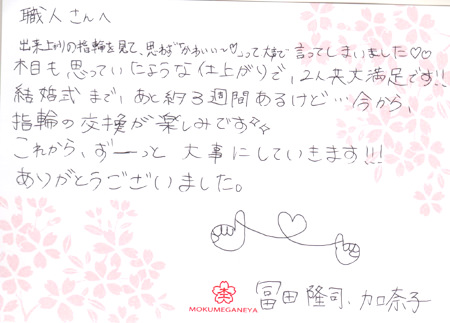 職人さんへ
出来上りの指輪を見て、思わず"かわいい～♡"って大声で言ってしまいました♡♡
木目も思っていたような仕上がりで、2人共大満足です!!
結婚式まで、あと約3週間あるけど…今から、
指輪の交換が楽しみです
これから、ずーっと大事にしていきます!!!
ありがとうございました。
冨田 隆司、加奈子
MOKUMEGANEYA